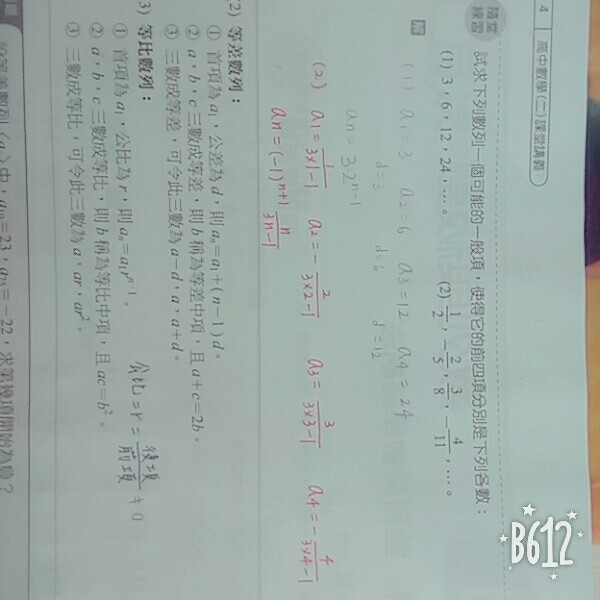 4 高中數學(二)課堂講義
隨堂練習
試求下列數列一個可能的一般項，使得它的前四項分別是下列各數：
(1) 3，6，12，24，…。 (2) 1/2，-2/5，3/8，-4/11，…。
解
(1) a1=3 a2=6 a3=12 a4=24
d=3 d=6 d=12
an=3·2^(n-1)
(2) a1=1/(3×1-1) a2=-2/(3×2-1) a3=3/(3×3-1) a4=-4/(3×4-1)
an=(-1)^(n+1) n/(3n-1)
(2) 等差數列：
① 首項為a1，公差為d，則an=a1+(n-1)d。
② a，b，c三數成等差，則b稱為等差中項，且a+c=2b。
③ 三數成等差，可令此三數為a-d，a，a+d。
3) 等比數列：
① 首項為a1，公比為r，則an=a1r^(n-1)。
公比=r=後項/前項≠0
② a，b，c三數成等比，則b稱為等比中項，且ac=b²。
③ 三數成等比，可令此三數為a，ar，ar²。
等差數列〈an〉中，a10=23，a25=-22，求第幾項開始為負？
B612